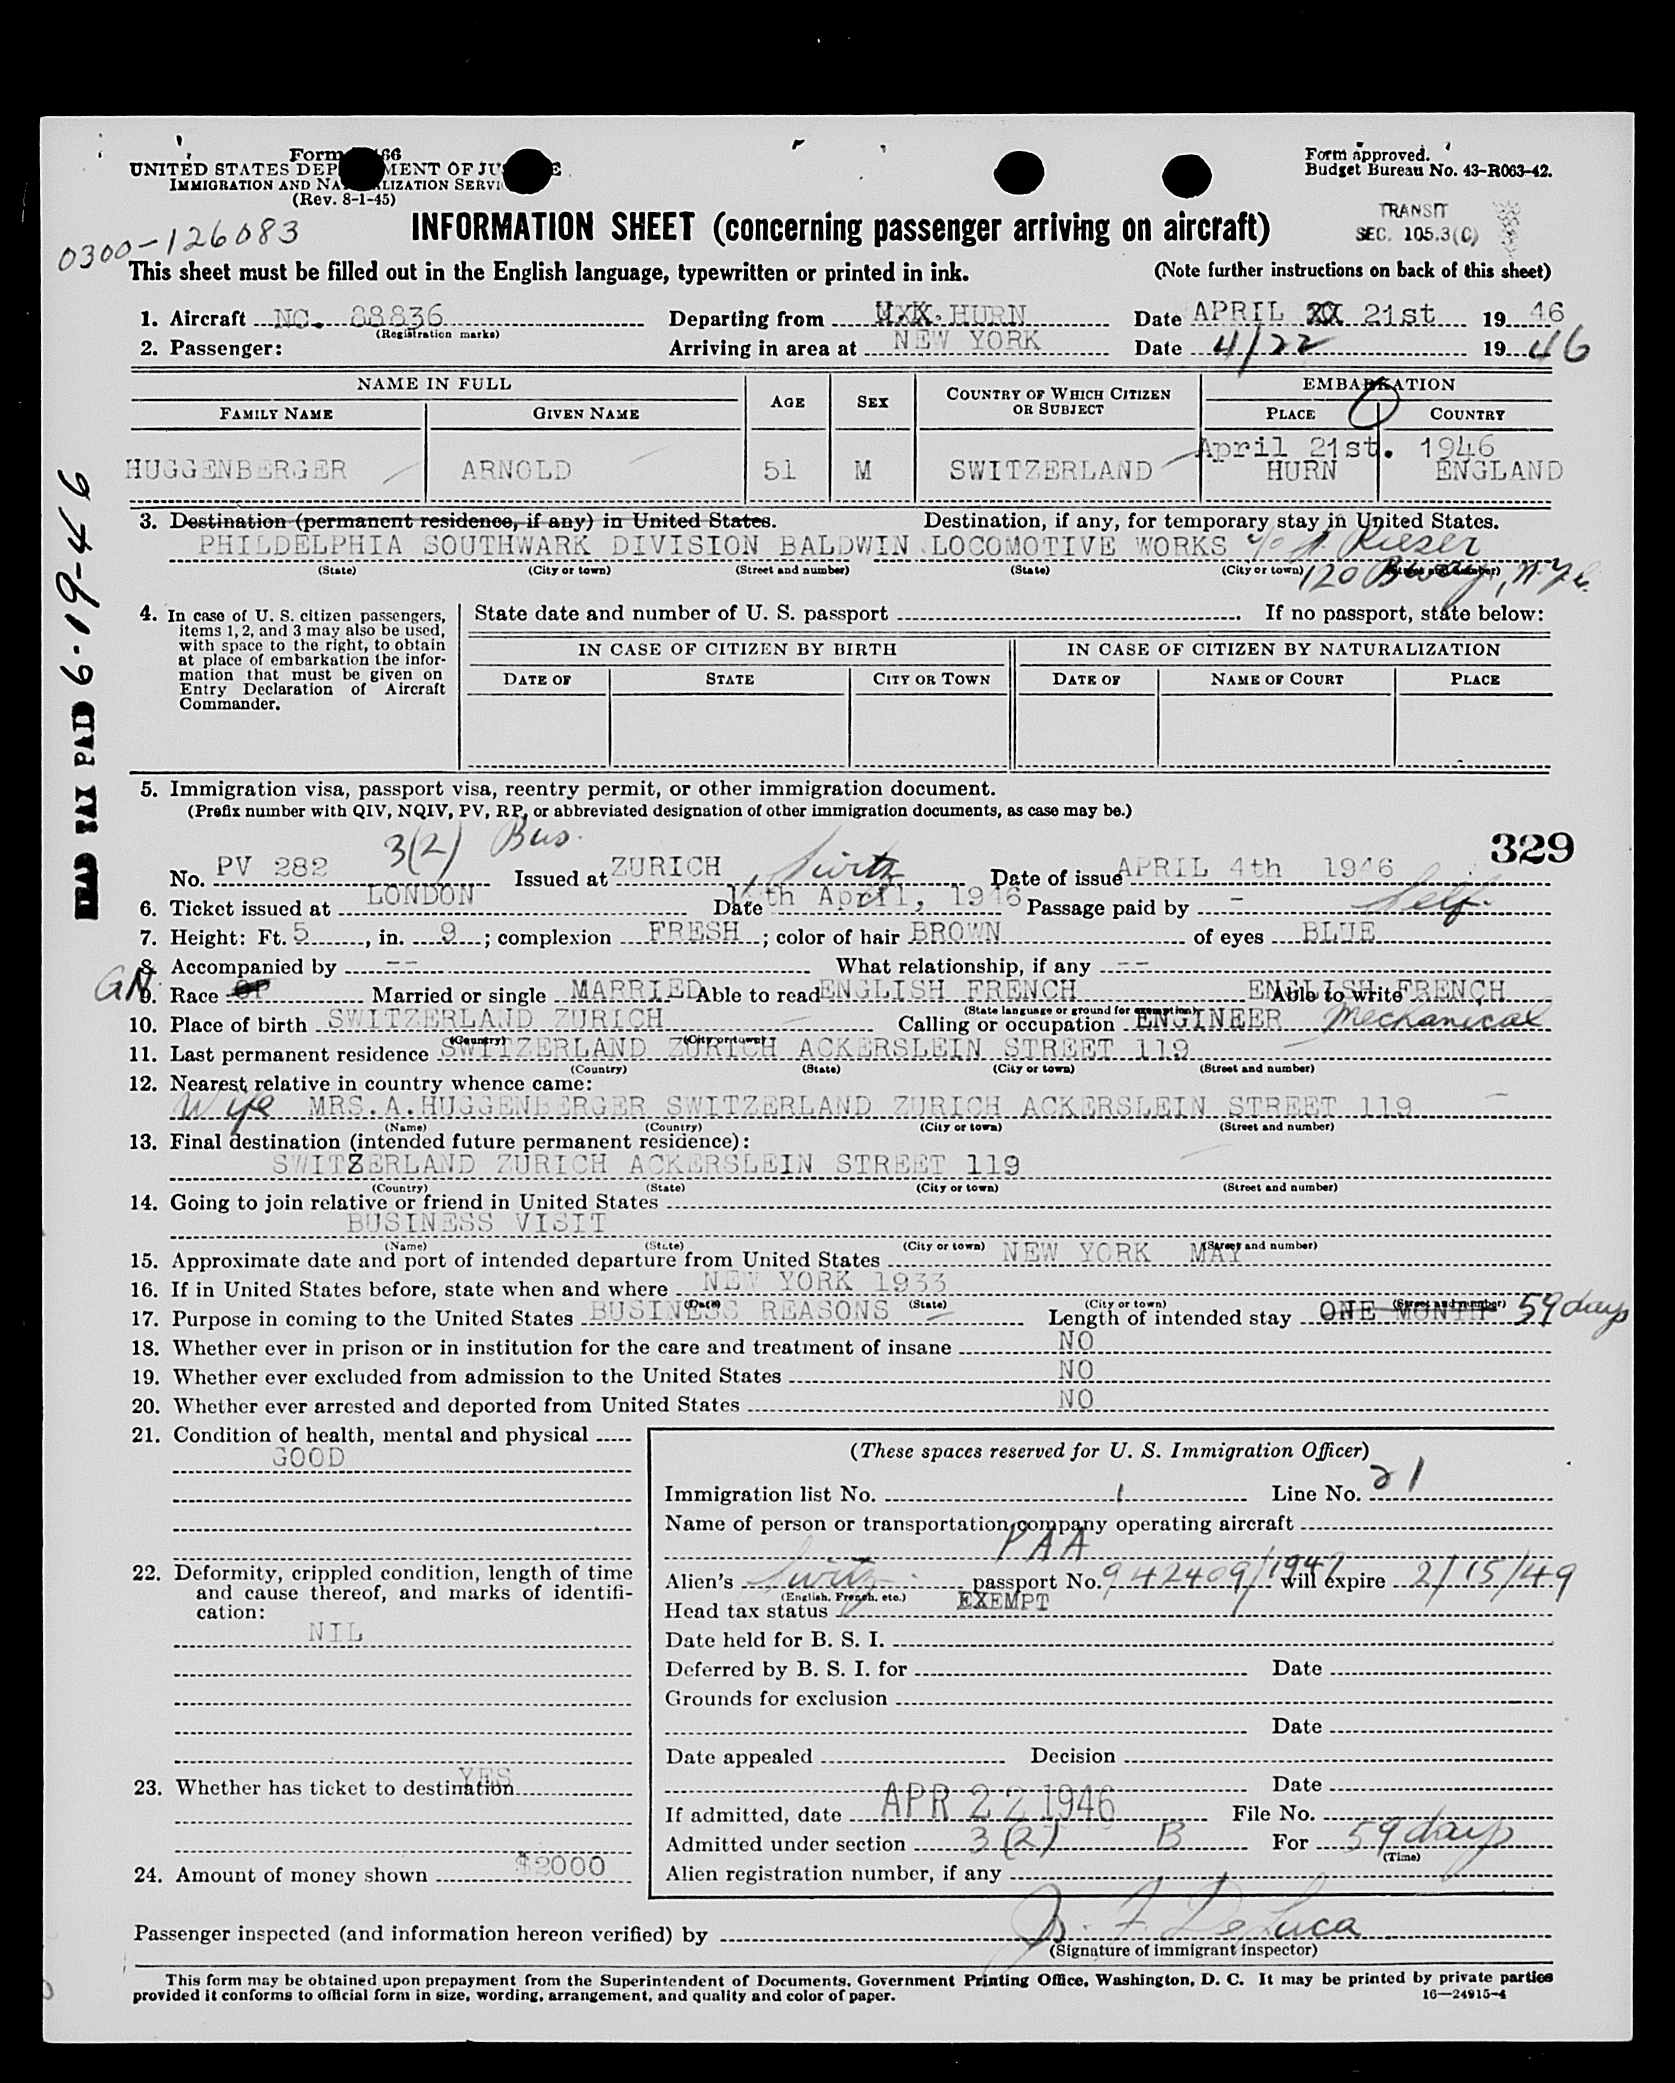 Form 66
UNITED STATES DEP MENT OF JU E
IMMIGRATION AND NA LIZATION SERVI
(Rev. 8-1-45)
Form approved.
Budget Bureau No. 43-R063-42.
0300-126083
INFORMATION SHEET (concerning passenger arriving on aircraft)
TRANSIT
SEC. 105.3(C)
This sheet must be filled out in the English language, typewritten or printed in ink.
(Note further instructions on back of this sheet)
1. Aircraft NC. 88836 Departing from HURN Date APRIL 21st 19 46
(Registration marks)
2. Passenger: Arriving in area at NEW YORK Date 4/22 19 46
NAME IN FULL AGE SEX COUNTRY OF WHICH CITIZEN OR SUBJECT EMBARKATION
FAMILY NAME GIVEN NAME PLACE COUNTRY
April 21st. 1946
HUGGENBERGER ARNOLD 51 M SWITZERLAND HURN ENGLAND
3. Destination (permanent residence, if any) in United States. Destination, if any, for temporary stay in United States.
PHILDELPHIA SOUTHWARK DIVISION BALDWIN LOCOMOTIVE WORKS c/o A. Rieser
(State) (City or town) (Street and number) (State) (City or town) (Street and number)
120 Bway, N.Y.C.
4. In case of U. S. citizen passengers, items 1, 2, and 3 may also be used, with space to the right, to obtain at place of embarkation the information that must be given on Entry Declaration of Aircraft Commander.
State date and number of U. S. passport If no passport, state below:
IN CASE OF CITIZEN BY BIRTH IN CASE OF CITIZEN BY NATURALIZATION
DATE OF STATE CITY OR TOWN DATE OF NAME OF COURT PLACE
HEAD TAX PAID 6-19-46
5. Immigration visa, passport visa, reentry permit, or other immigration document.
(Prefix number with QIV, NQIV, PV, RP, or abbreviated designation of other immigration documents, as case may be.)
3(2) Bus.
329
No. PV 282 Issued at ZURICH, Switz Date of issue APRIL 4th 1946
6. Ticket issued at LONDON Date 14th April, 1946 Passage paid by - Self.
7. Height: Ft. 5, in. 9; complexion FRESH; color of hair BROWN of eyes BLUE
8. Accompanied by -- What relationship, if any --
GN
9. Race Married or single MARRIED Able to read ENGLISH FRENCH Able to write ENGLISH FRENCH
(State language or ground for exemption)
10. Place of birth SWITZERLAND ZURICH Calling or occupation ENGINEER Mechanical
(Country) (City or town)
11. Last permanent residence SWITZERLAND ZURICH ACKERSLEIN STREET 119
(Country) (State) (City or town) (Street and number)
12. Nearest relative in country whence came:
Wife MRS.A.HUGGENBERGER SWITZERLAND ZURICH ACKERSLEIN STREET 119
(Name) (Country) (City or town) (Street and number)
13. Final destination (intended future permanent residence):
SWITZERLAND ZURICH ACKERSLEIN STREET 119
(Country) (State) (City or town) (Street and number)
14. Going to join relative or friend in United States
BUSINESS VISIT
(Name) (State) (City or town) (Street and number)
15. Approximate date and port of intended departure from United States NEW YORK MAY
16. If in United States before, state when and where NEW YORK 1933
(Date) (State) (City or town) (Street and number)
17. Purpose in coming to the United States BUSINESS REASONS Length of intended stay ONE MONTH 59 days
18. Whether ever in prison or in institution for the care and treatment of insane NO
19. Whether ever excluded from admission to the United States NO
20. Whether ever arrested and deported from United States NO
21. Condition of health, mental and physical
GOOD
22. Deformity, crippled condition, length of time and cause thereof, and marks of identification:
NIL
23. Whether has ticket to destination YES
24. Amount of money shown $2000
(These spaces reserved for U. S. Immigration Officer)
Immigration list No. 1 Line No. 21
Name of person or transportation company operating aircraft
PAA
Alien's Switz. passport No. 942409/1947 will expire 2/15/49
(English, French, etc.)
Head tax status EXEMPT
Date held for B. S. I.
Deferred by B. S. I. for Date
Grounds for exclusion
Date
Date appealed Decision
Date
If admitted, date APR 22 1946 File No.
Admitted under section 3(2) B For 59 days
(Time)
Alien registration number, if any
Passenger inspected (and information hereon verified) by J. F. DeLuca
(Signature of immigrant inspector)
This form may be obtained upon prepayment from the Superintendent of Documents, Government Printing Office, Washington, D. C. It may be printed by private parties
provided it conforms to official form in size, wording, arrangement, and quality and color of paper.
16—24915-4